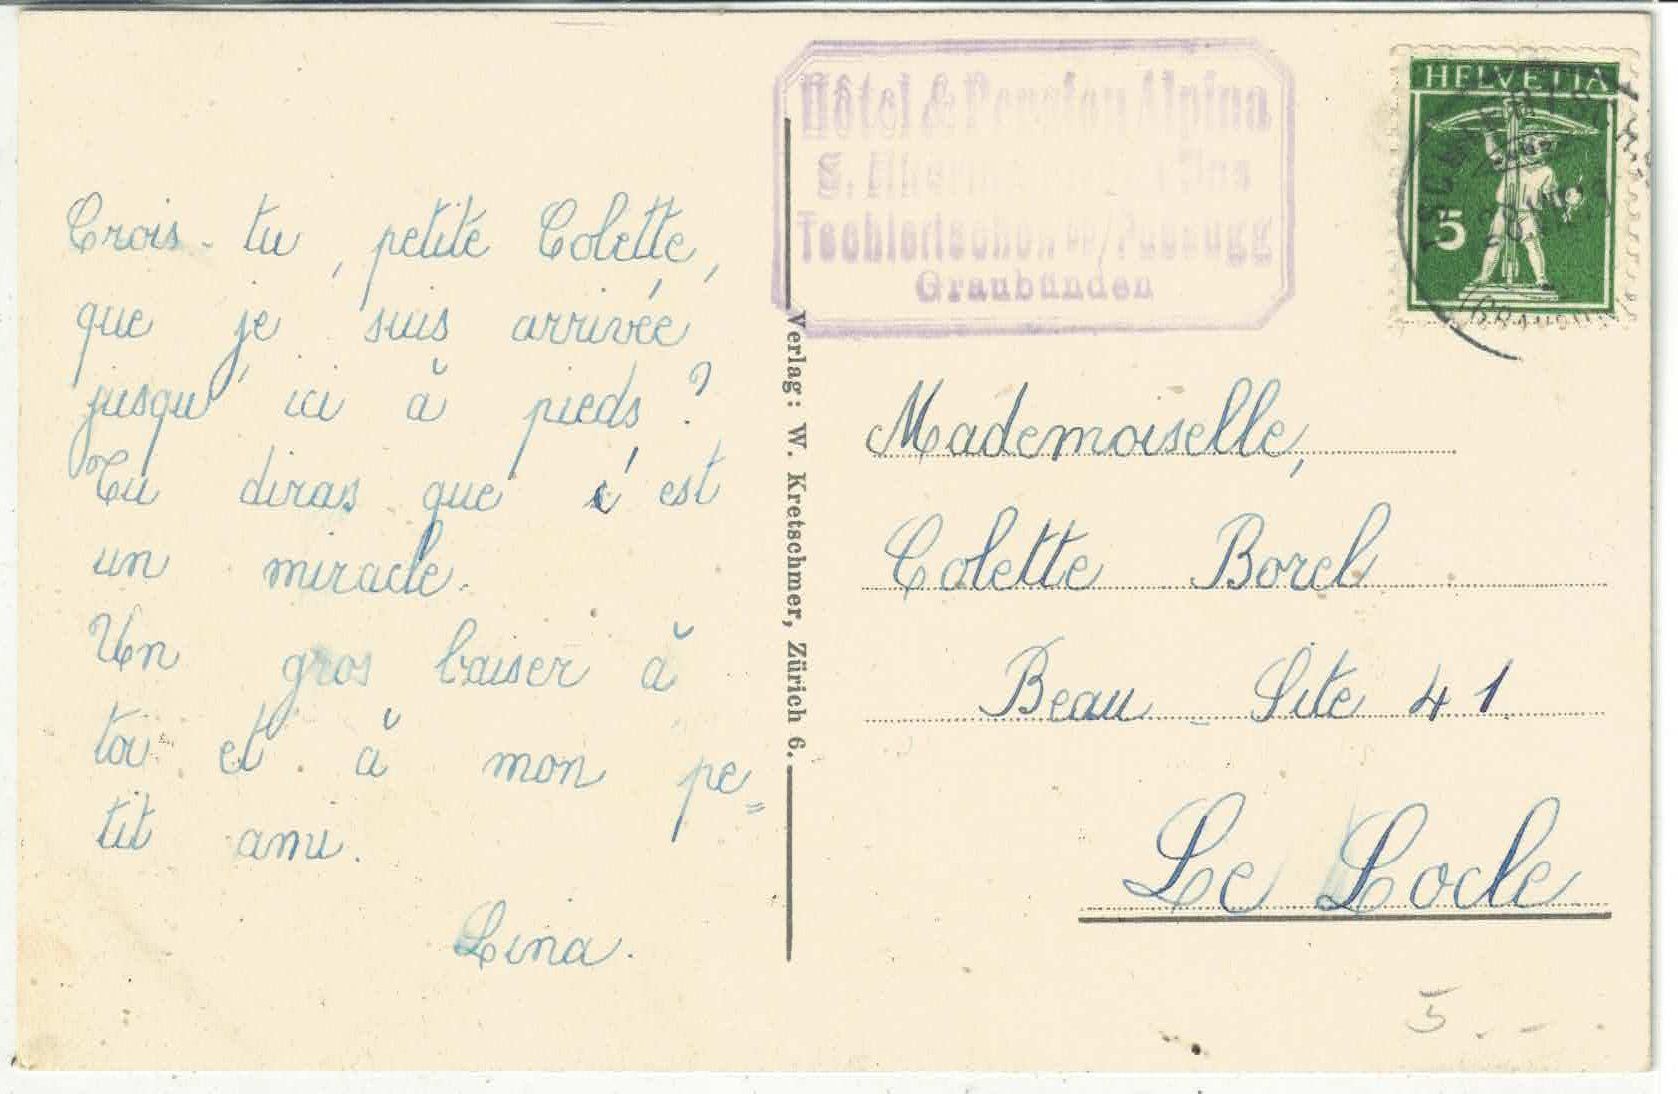 Crois-tu, petite Colette,
que je suis arrivée
jusqu'ici à pieds?
Tu diras que c'est
un miracle.
Un gros baiser à
toi et à mon pe=
tit ami.
Lina.
Verlag: W. Kretschmer, Zürich 6.
Hôtel & Pension Alpina
Tschiertschen
Graubünden
HELVETIA
5
Mademoiselle,
Colette Borel
Beau-Site 41
Le Locle
5.-